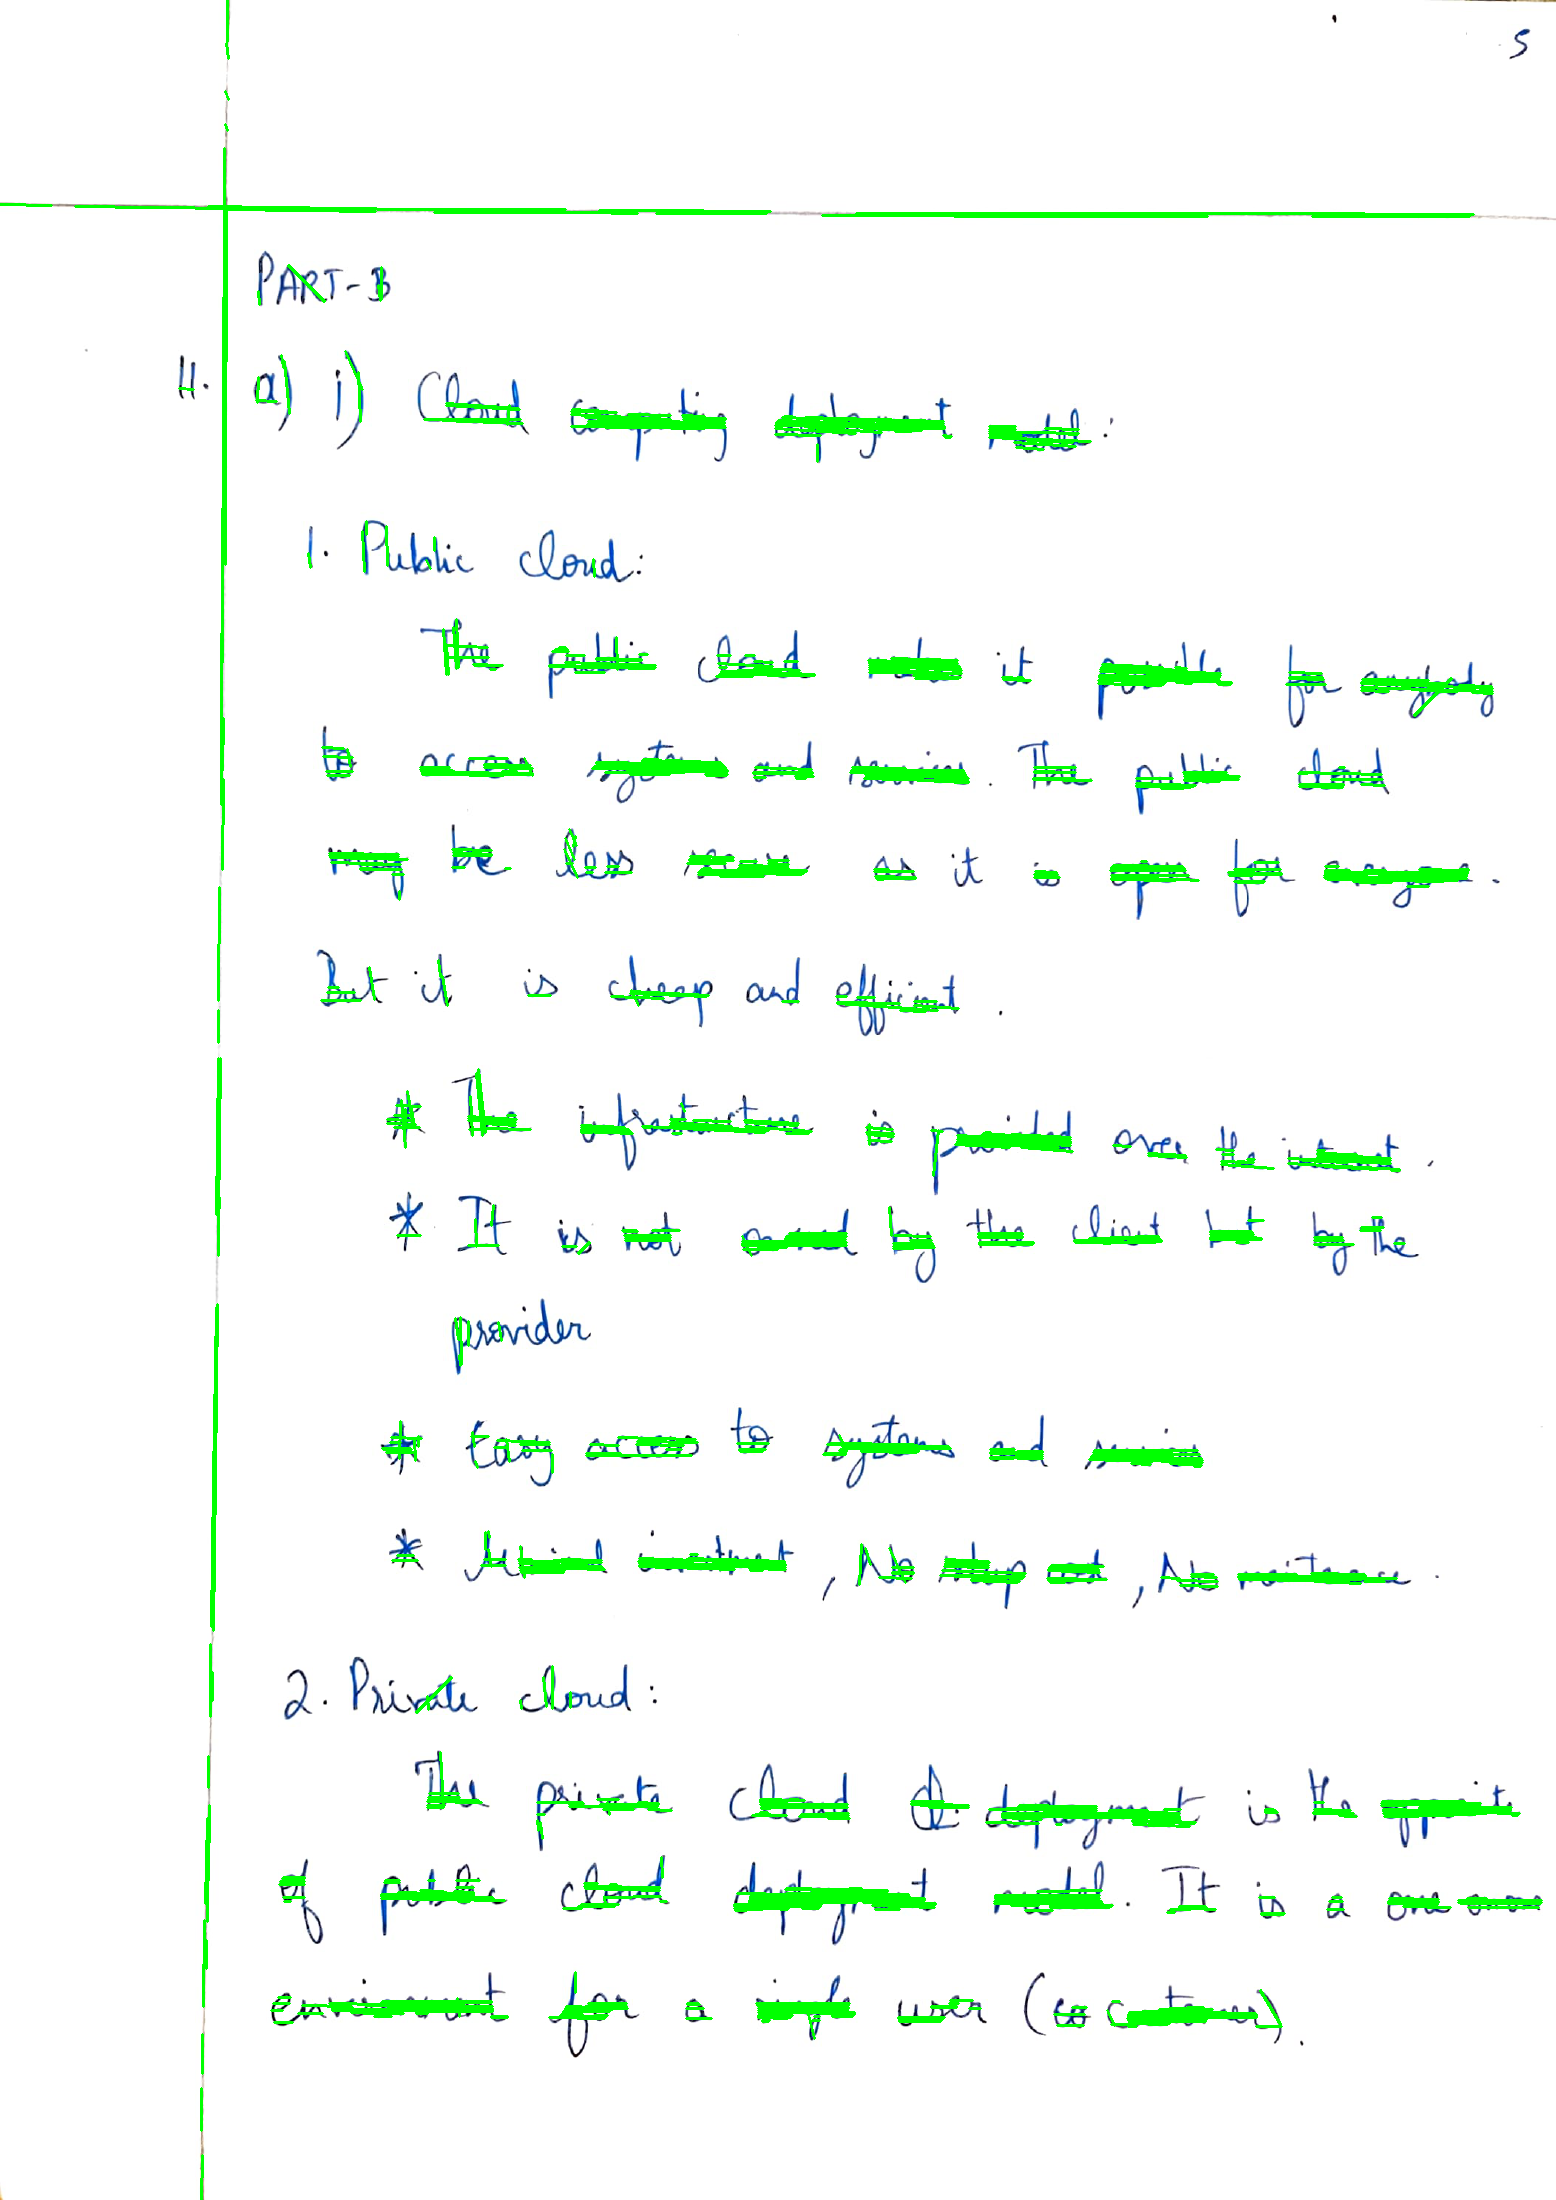 5
PART-B
11. a) i) Cloud computing deployment model:
1. Public cloud:
The public cloud makes it possible for anybody
to access systems and services. The public cloud
may be less secure as it is open for everyone.
But it is cheap and efficient.
* The infrastructure is provided over the internet.
* It is not owned by the client but by the
provider
* Easy access to systems and services
* Minimal investment, No setup cost, No
2. Private cloud:
The private cloud deployment is the opposite
of public cloud deployment model. It is a one on one
for a single user (or customer).